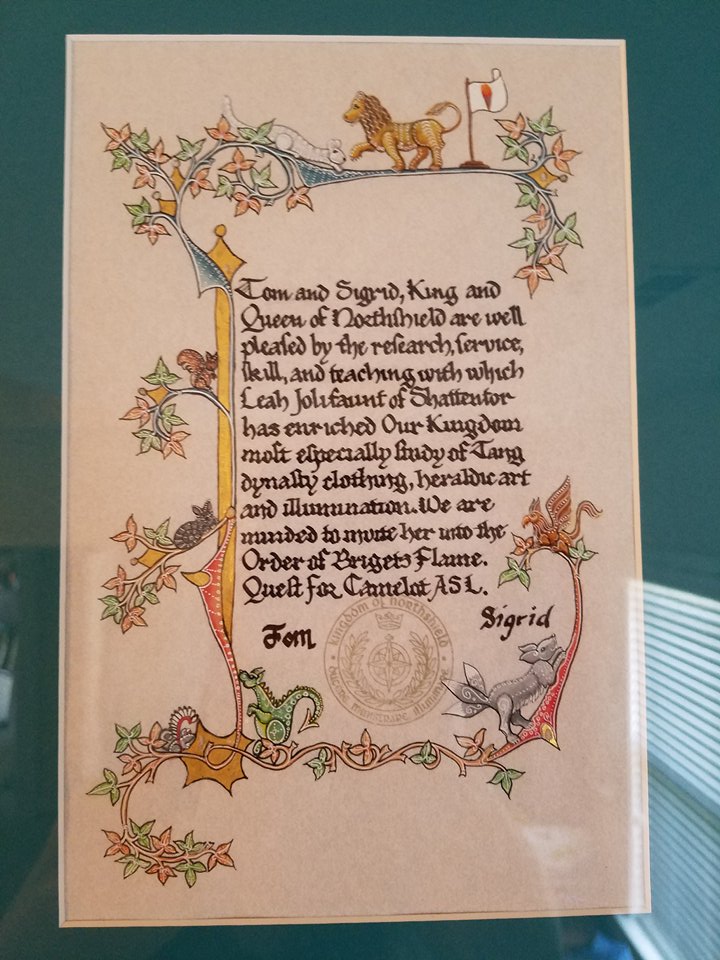 Tom and Sigrid, King and
Queen of Northshield are well
pleased by the research, service,
skill, and teaching with which
Leah Jolifaunt of Shattentor
has enriched Our Kingdom
most especially study of Tang
dynasty clothing, heraldic art
and illumination. We are
minded to invite her into the
Order of Brigets Flame.
Quest for Camelot AS L.
Tom
Sigrid
kingdom of northshield